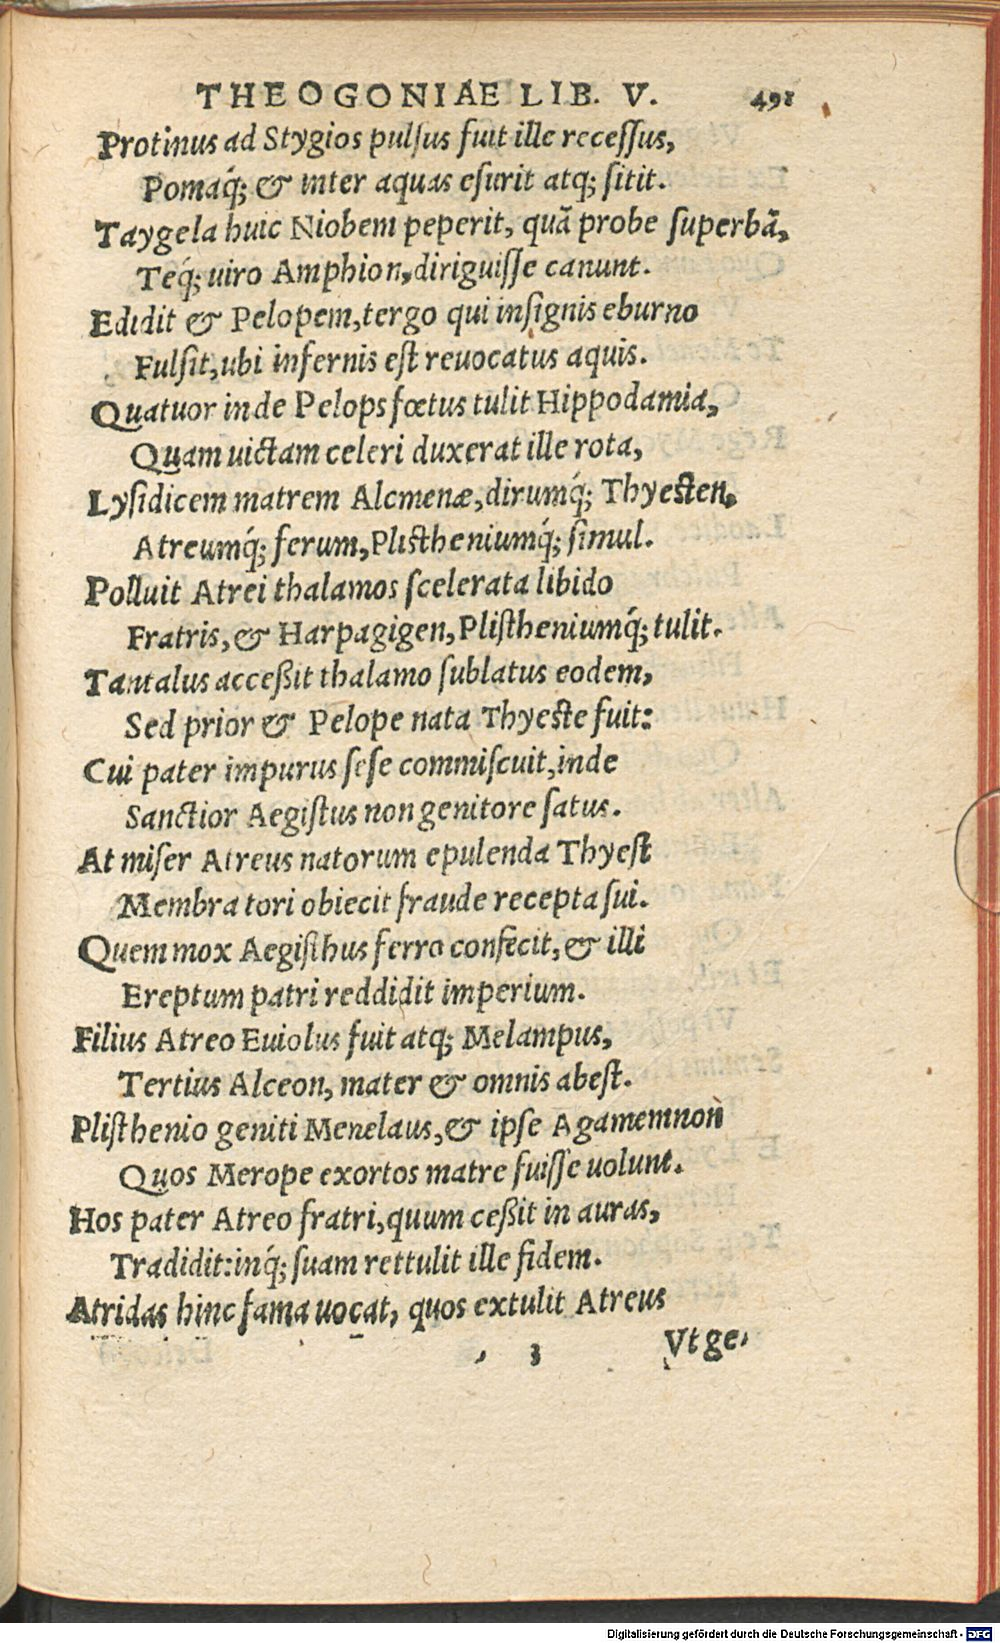 THEOGONIAE LIB. V. 491
Protinus ad Stygios pulſus fuit ille receſſus,
Pomaq́; & inter aquas eſurit atq; ſitit.
Taygela huic Niobem peperit, quã probe ſuperbã,
Teq́; uiro Amphion, diriguiſſe canunt.
Edidit & Pelopem, tergo qui inſignis eburno
Fulſit, ubi infernis eſt reuocatus aquis.
Quatuor inde Pelops fœtus tulit Hippodamia,
Quam uictam celeri duxerat ille rota,
Lyſidicem matrem Alcmenæ, dirumq́; Thyeſten,
Atreumq́; ferum, Pliſtheniumq́; ſimul.
Polluit Atrei thalamos ſcelerata libido
Fratris, & Harpagigen, Pliſtheniumq́; tulit.
Tantalus acceßit thalamo ſublatus eodem,
Sed prior & Pelope nata Thyeſte fuit:
Cui pater impurus ſeſe commiſcuit, inde
Sanctior Aegiſtus non genitore ſatus.
At miſer Atreus natorum epulenda Thyeſt
Membra tori obiecit fraude recepta ſui.
Quem mox Aegiſthus ferro confecit, & illi
Ereptum patri reddidit imperium.
Filius Atreo Euiolus fuit atq; Melampus,
Tertius Alceon, mater & omnis abeſt.
Pliſthenio geniti Menelaus, & ipſe Agamemnon
Quos Merope exortos matre fuiſſe uolunt.
Hos pater Atreo fratri, quum ceßit in auras,
Tradidit: inq́; ſuam rettulit ille fidem.
Atridas hinc fama uocat, quos extulit Atreus
3 Vt ge,